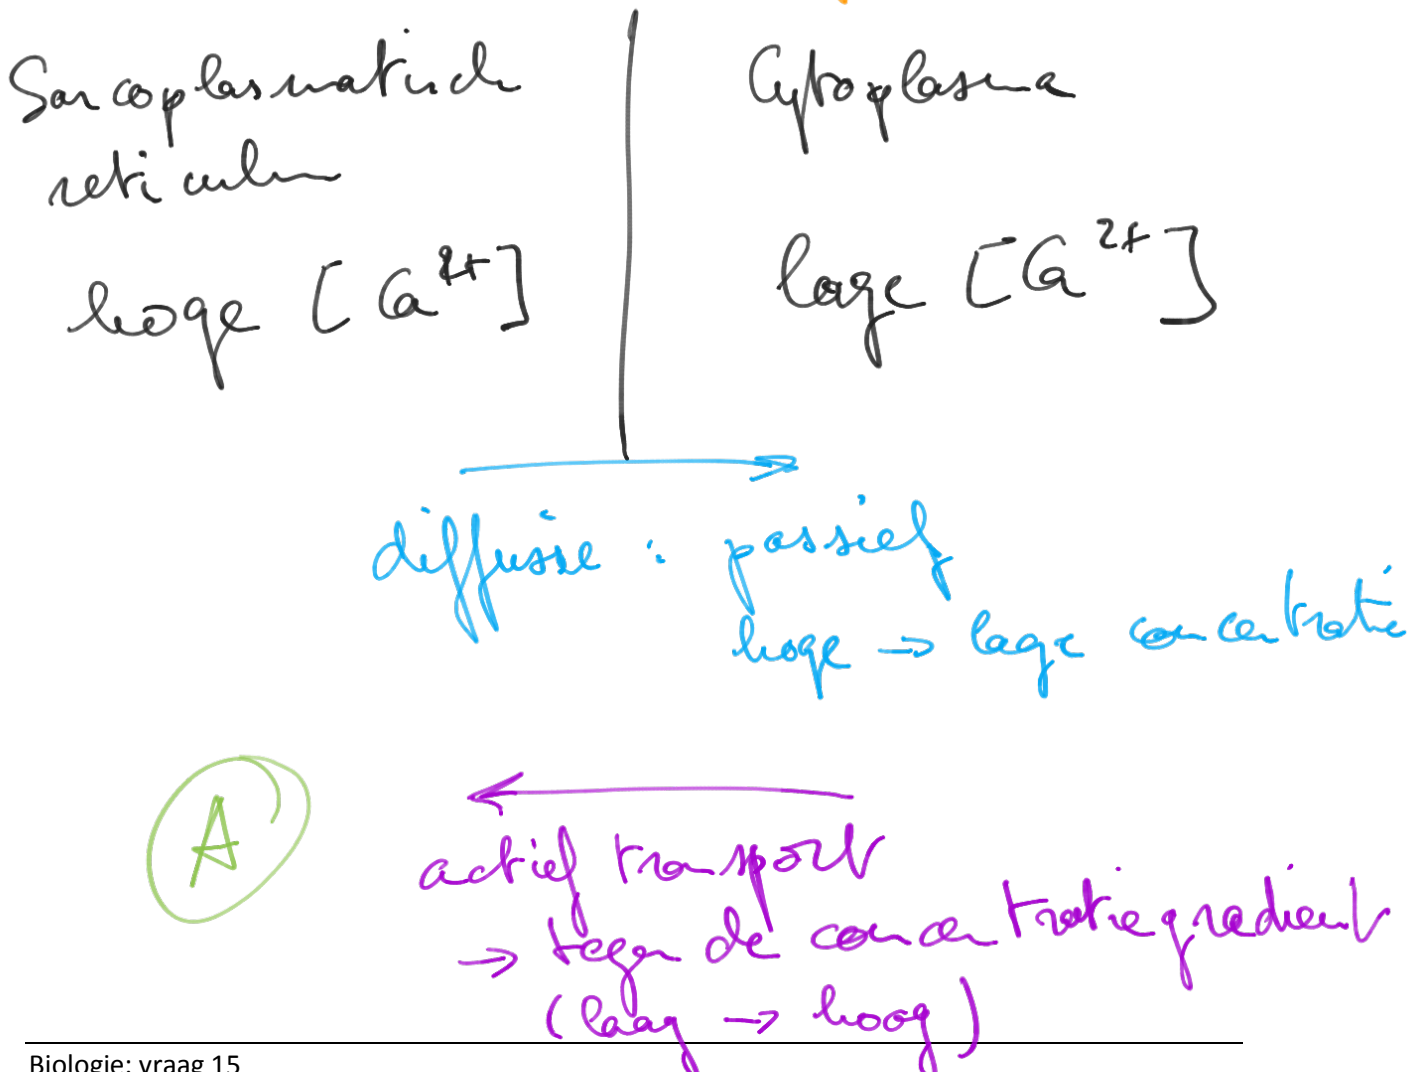 Sarcoplasmatisch
reticulum
hoge [Ca²⁺]
Cytoplasma
lage [Ca²⁺]
diffusie : passief
hoge → lage concentratie
A
actief transport
→ tegen de concentratiegradient
(laag → hoog)
Biologie: vraag 15